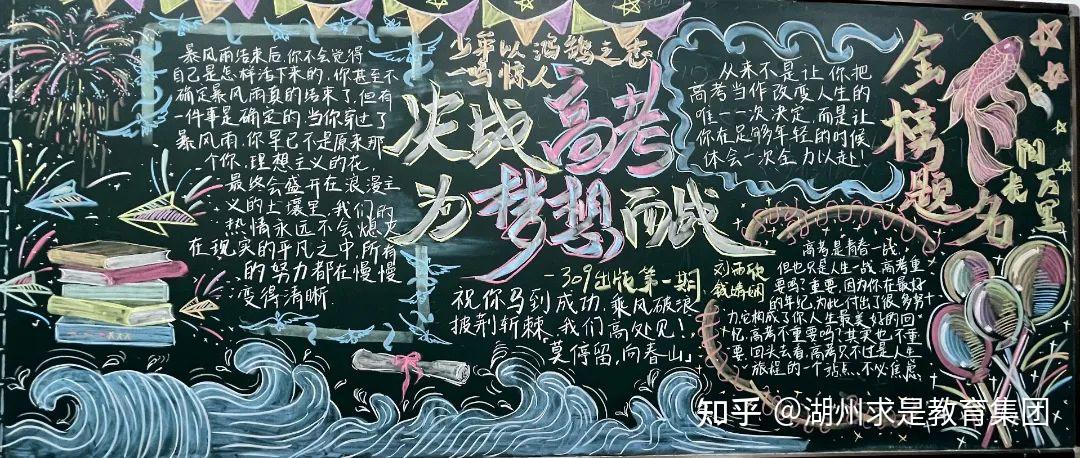 暴风雨结束后你不会觉得
自己是怎样活下来的,你甚至不
确定暴风雨真的结束了,但有
一件事是确定的,当你穿过了
暴风雨,你早已不是原来那
个你,理想主义的花
最终会盛开在浪漫主
义的土壤里,我们的
热情永远不会熄灭
在现实的平凡之中,所有
的努力都在慢慢
变得清晰
少年以鸿鹄之志
一鸣惊人
决战高考
为梦想而战
309出版第一期
祝你马到成功,乘风破浪
披荆斩棘,我们高处见!
「莫停留,向春山」
从来不是让你把
高考当作改变人生的
唯一一次决定,而是让
你在足够年轻的时候
体会一次全力以赴!
金榜题名
高考是青春一战,
但也只是人生一战,高考重
要吗?重要,因为你在最好
的年纪,为此付出了很多努
力,它构成了你人生最美好的回
忆,高考不重要吗?其实也不重
要,回头去看,高考只不过是人生
旅程的一个站点,不必焦虑
知乎 @湖州求是教育集团